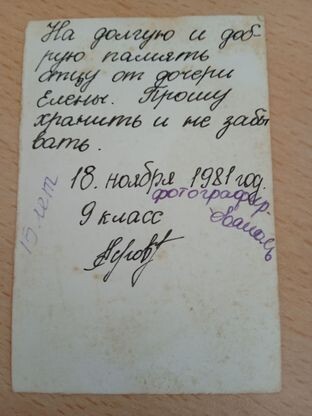 На долгую и доб
рую память
отцу от дочери
Елены. Прошу
хранить и не забы
вать.
18. ноября 1981 год.
9 класс
15 лет
фотографир-
овалась